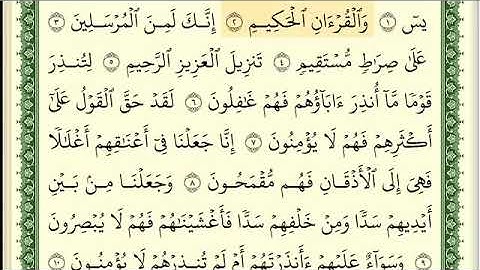 يسٓ ١ وَٱلۡقُرۡءَانِ ٱلۡحَكِيمِ ٢ إِنَّكَ لَمِنَ ٱلۡمُرۡسَلِينَ ٣
عَلَىٰ صِرَٰطٖ مُّسۡتَقِيمٖ ٤ تَنزِيلَ ٱلۡعَزِيزِ ٱلرَّحِيمِ ٥ لِتُنذِرَ
قَوۡمٗا مَّآ أُنذِرَ ءَابَآؤُهُمۡ فَهُمۡ غَٰفِلُونَ ٦ لَقَدۡ حَقَّ ٱلۡقَوۡلُ عَلَىٰٓ
أَكۡثَرِهِمۡ فَهُمۡ لَا يُؤۡمِنُونَ ٧ إِنَّا جَعَلۡنَا فِيٓ أَعۡنَٰقِهِمۡ أَغۡلَٰلٗا
فَهِيَ إِلَى ٱلۡأَذۡقَانِ فَهُم مُّقۡمَحُونَ ٨ وَجَعَلۡنَا مِنۢ بَيۡنِ
أَيۡدِيهِمۡ سَدّٗا وَمِنۡ خَلۡفِهِمۡ سَدّٗا فَأَغۡشَيۡنَٰهُمۡ فَهُمۡ لَا يُبۡصِرُونَ
٩ وَسَوَآءٌ عَلَيۡهِمۡ ءَأَنذَرۡتَهُمۡ أَمۡ لَمۡ تُنذِرۡهُمۡ لَا يُؤۡمِنُونَ ١٠